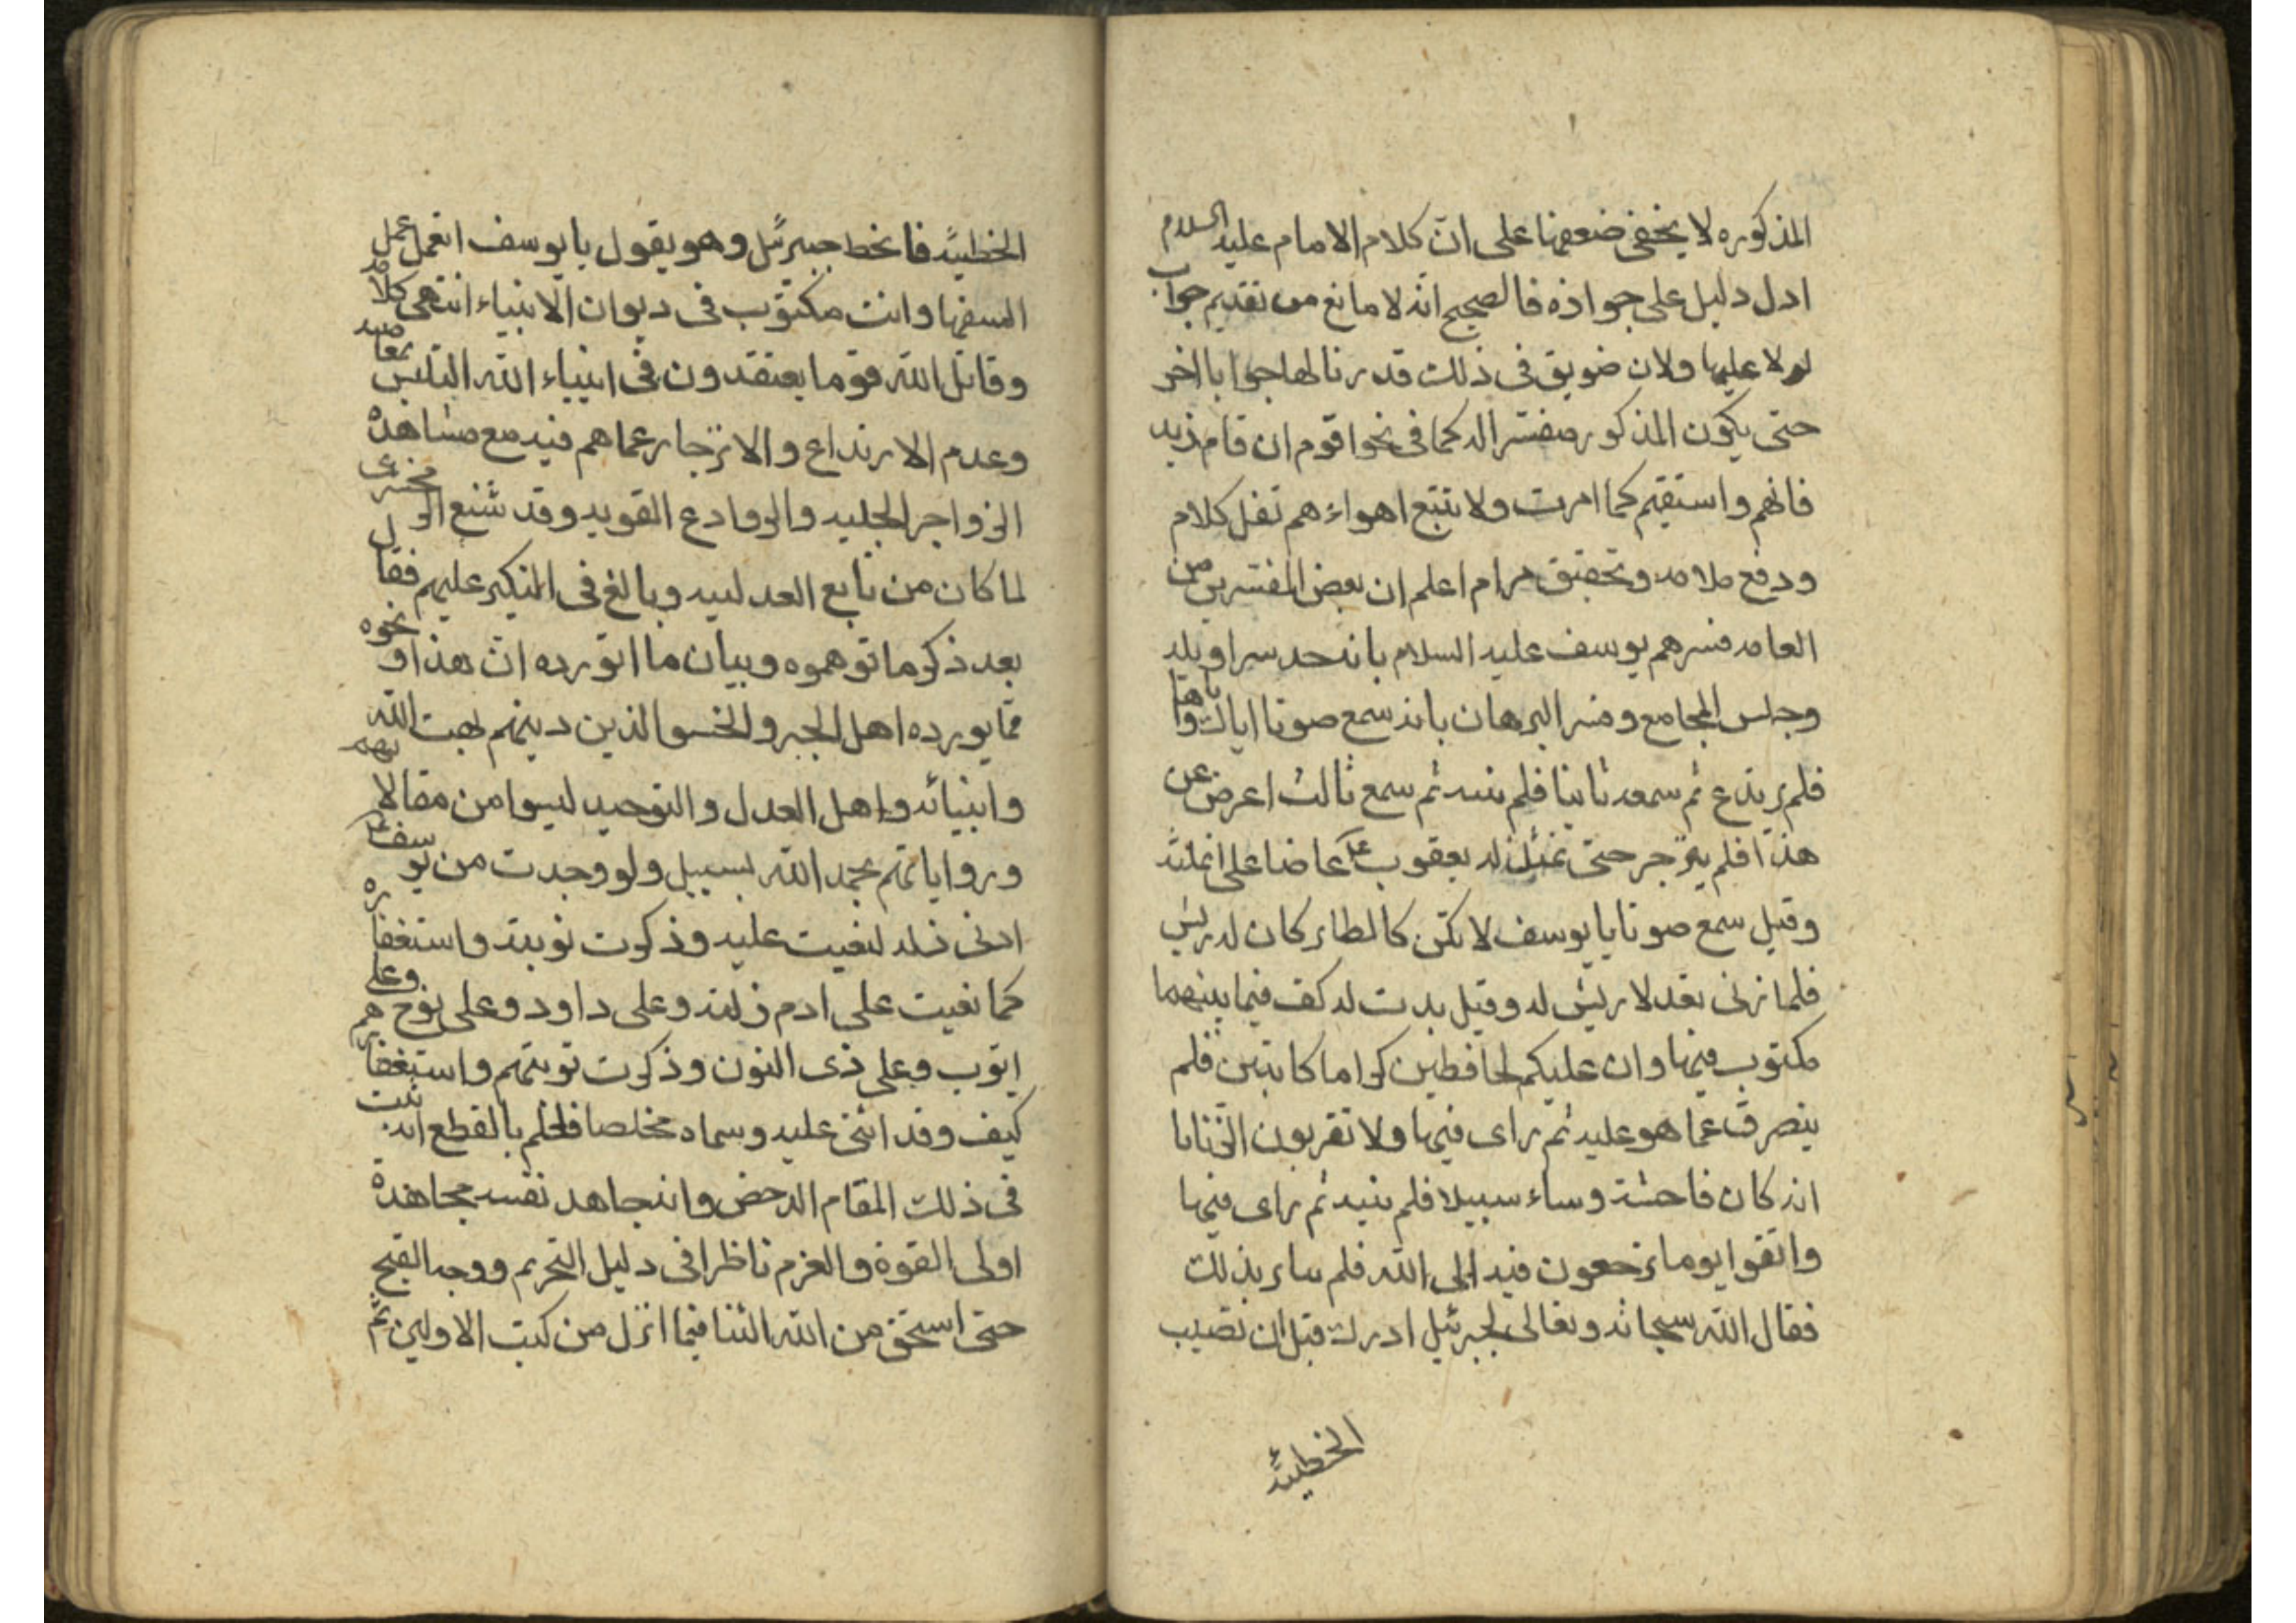 المذكوره لا يخفى ضعفها على ان كلام الامام عليه السلام
ادل دليل على جوازه فالصحيح انه لا مانع من تقديم جواب
لولا عليها ولان ضويق في ذلك قدرنا لها جوابا اخر
حتى يكون المذكور مفسرا له كما في نحو اقوم ان قام زيد
فافهم واستقم كما امرت ولا تتبع اهواءهم نقل كلام
ودفع ملامه وتحقيق مرام اعلم ان بعض المفسرين من
العامه فسرهم يوسف عليه السلام بانه حد سراويله
وجلس المجامع وفسر البرهان بانه سمع صوتا اياك واياها
فلم يرتدع ثم سمعه ثانيا فلم ينته ثم سمع ثالث اعرض عن
هذا فلم ينزجر حتى تمثل له يعقوب ع عاضا على انملته
وقيل سمع صوتا يا يوسف لا تكن كالطائر كان له ريش
فلما زنى بقد لا ريش له وقيل بدت له كف فيما بينهما
مكتوب فيها وان عليكم لحافظين كراما كاتبين فلم
ينصرف عما هو عليه ثم راى فيها ولا تقربون الزنا
انه كان فاحشة وساء سبيلا فلم ينته ثم راى فيها
واتقوا يوما ترجعون فيه الى الله فلم بذلك
فقال الله سبحانه وتعالى لجبرئيل ادرك قبل ان تصيب
الخطيئة
الخطيئة فانحط جبرئيل وهو يقول يا يوسف اتعمل عمل
السفها وانت مكتوب في ديوان الانبياء انتهى كلامه
وقاتل الله قوما يعتقدون في انبياء الله التلبس بمعاصيه
وعدم الارتداع والانزجار عما هم فيه مع مشاهدة
الزواجر الجليه والروادع القويه وقد شنع الزمخشرى
لما كان من تابع العدليه وبالغ في النكير عليهم فقال
بعد ذكر ما توهموه وبيان ما اتورده ان هذا ونحوه
مما يورده اهل الجبر والحشو الذين دينهم بهت الله
وانبيائه واهل العدل والتوحيد ليسوا من مقالاتهم
ورواياتهم بحمد الله بسبيل ولو وجدت من يوسف ع
ادنى ذله لنعيت عليه وذكرت توبته واستغفاره
كما نعيت على ادم زلته وعلى داود وعلى نوح وعلى
ايوب وعلى ذى النون وذكرت توبتهم واستغفارهم
كيف وقد اثنى عليه وسماه مخلصا فاعلم بالقطع انه ثبت
في ذلك المقام الدحض وانه جاهد نفسه مجاهدة
اولى القوة والعزم ناظرا في دليل التحريم ووجه القبح
حتى استحق من الله الثنا فيما انزل من كتب الاولين ثم